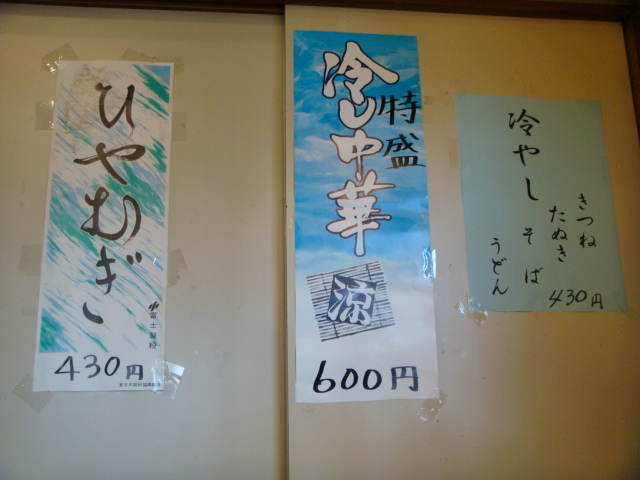 ひやむぎ
富士製粉
430円
冷し中華
特盛
涼
600円
冷やし
きつね
たぬき
そば
うどん
430円